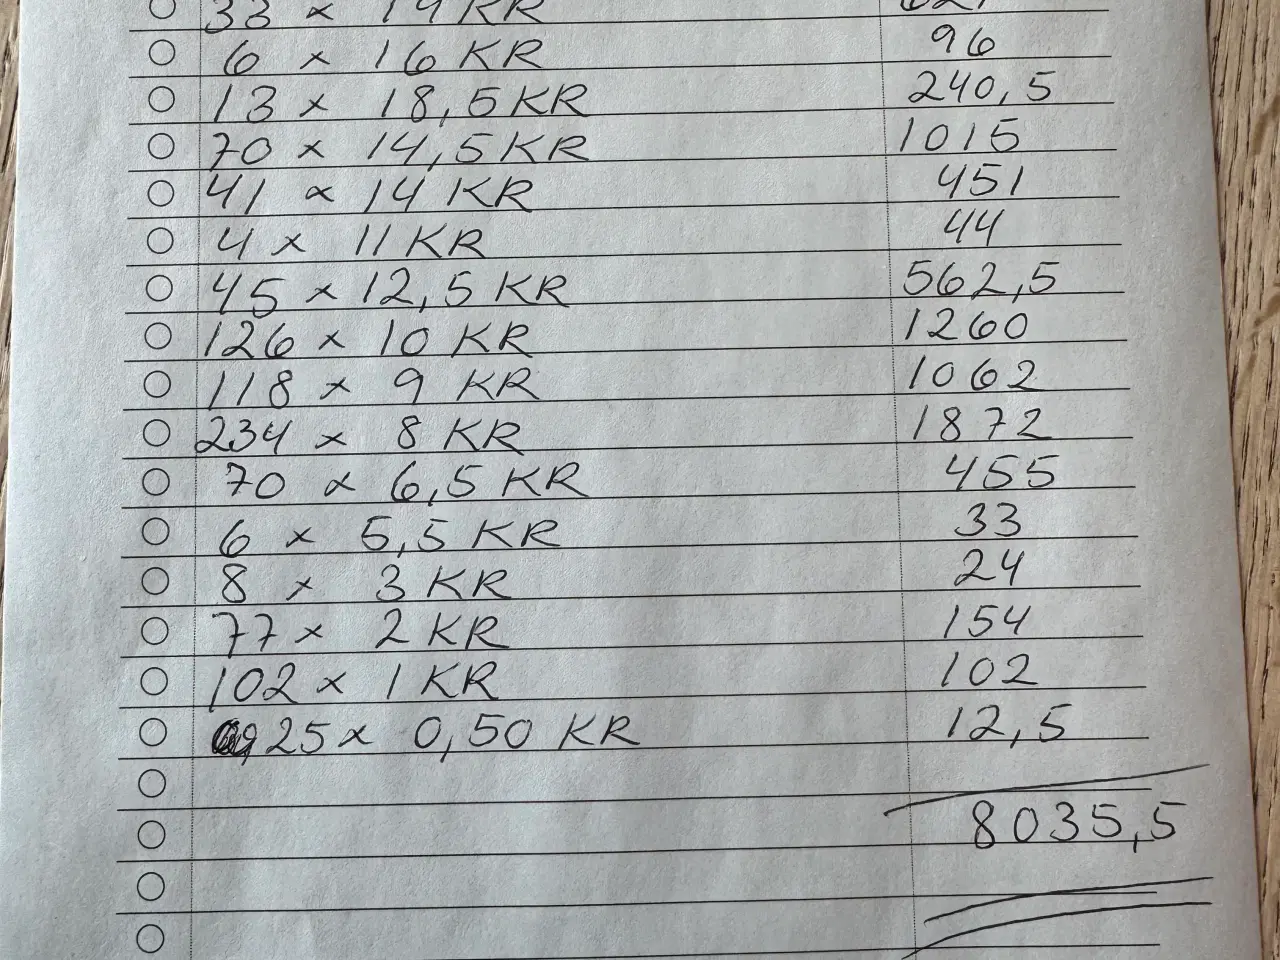 33 x 19 KR 627
6 x 16 KR 96
13 x 18,5 KR 240,5
70 x 14,5 KR 1015
41 x 14 KR 451
4 x 11 KR 44
45 x 12,5 KR 562,5
126 x 10 KR 1260
118 x 9 KR 1062
234 x 8 KR 1872
70 x 6,5 KR 455
6 x 5,5 KR 33
8 x 3 KR 24
77 x 2 KR 154
102 x 1 KR 102
25 x 0,50 KR 12,5
8035,5